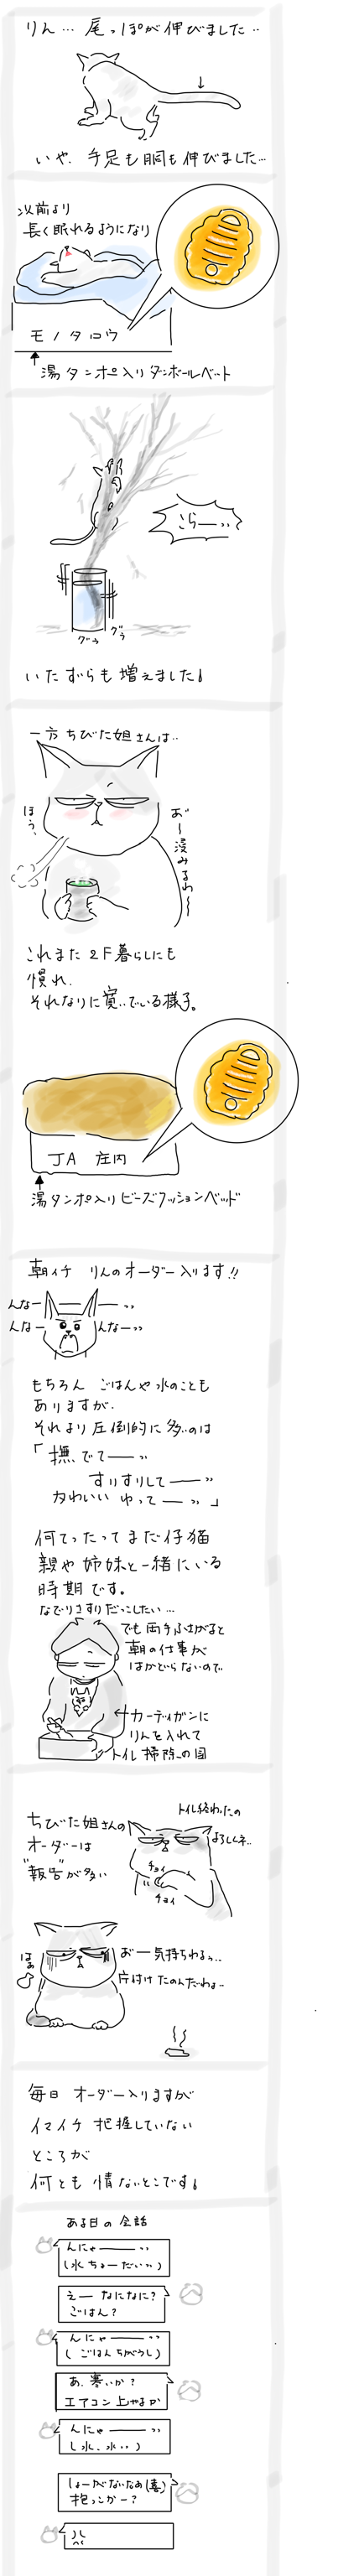 りん… 尾っぽが伸びました‥
いや、手足も胴も伸びました…
以前より
長く眠れるようになり
モノタロウ
湯タンポ入りダンボールベット
こらーッ
グゥ グゥ
いたずらも増えました!
一方ちびた姐さんは‥
ほう、
お〜浸みるわ〜
これまた2F暮らしにも
慣れ、
それなりに寛いでいる様子。
JA 庄内
湯タンポ入りビーズクッションベッド
朝イチ りんのオーダー入ります!!
んなー ーッ
んなー んなーッ
もちろん ごはんや水のことも
ありますが、
それより圧倒的に多いのは
「撫でてーッ
すりすりしてーッ
カわいいゆってーッ」
何てったってまだ仔猫
親や姉妹と一緒にいる
時期です。
なでりさすりだっこしたい…
でも両手ふさがると
朝の仕事が
はかどらないので
←カーディガンに
りんを入れて
トイレ掃除の図
ちびた姐さんの
オーダーは
"報告"が多い
トイレ終わったの
よろしくネ‥
チョイ
チョイ
はぁ
お一気持ちわるっ‥
片付けたのんだわよ‥
毎日 オーダー入りますが
イマイチ把握していない
ところが
何とも情ないとこです!
ある日の会話
んにゃーーッ
(水ちょーだいッ)
えー なになに?
ごはん?
んにゃーーッ
(ごはんちがうし)
あ、寒いか?
エアコン上げよか
んにゃーーッ
(水、水ッ)
しょーがないなぁ(喜)
抱っこかー?